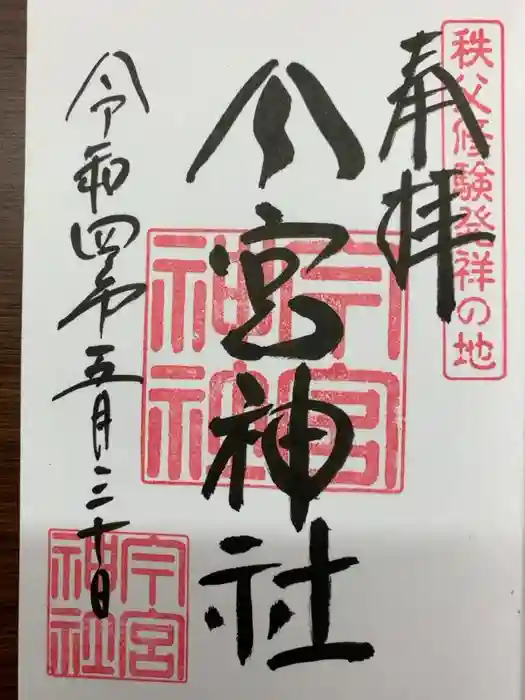 秩父修験発祥の地
奉拝
今宮神社
今宮神社
令和四年五月三十日
今宮神社